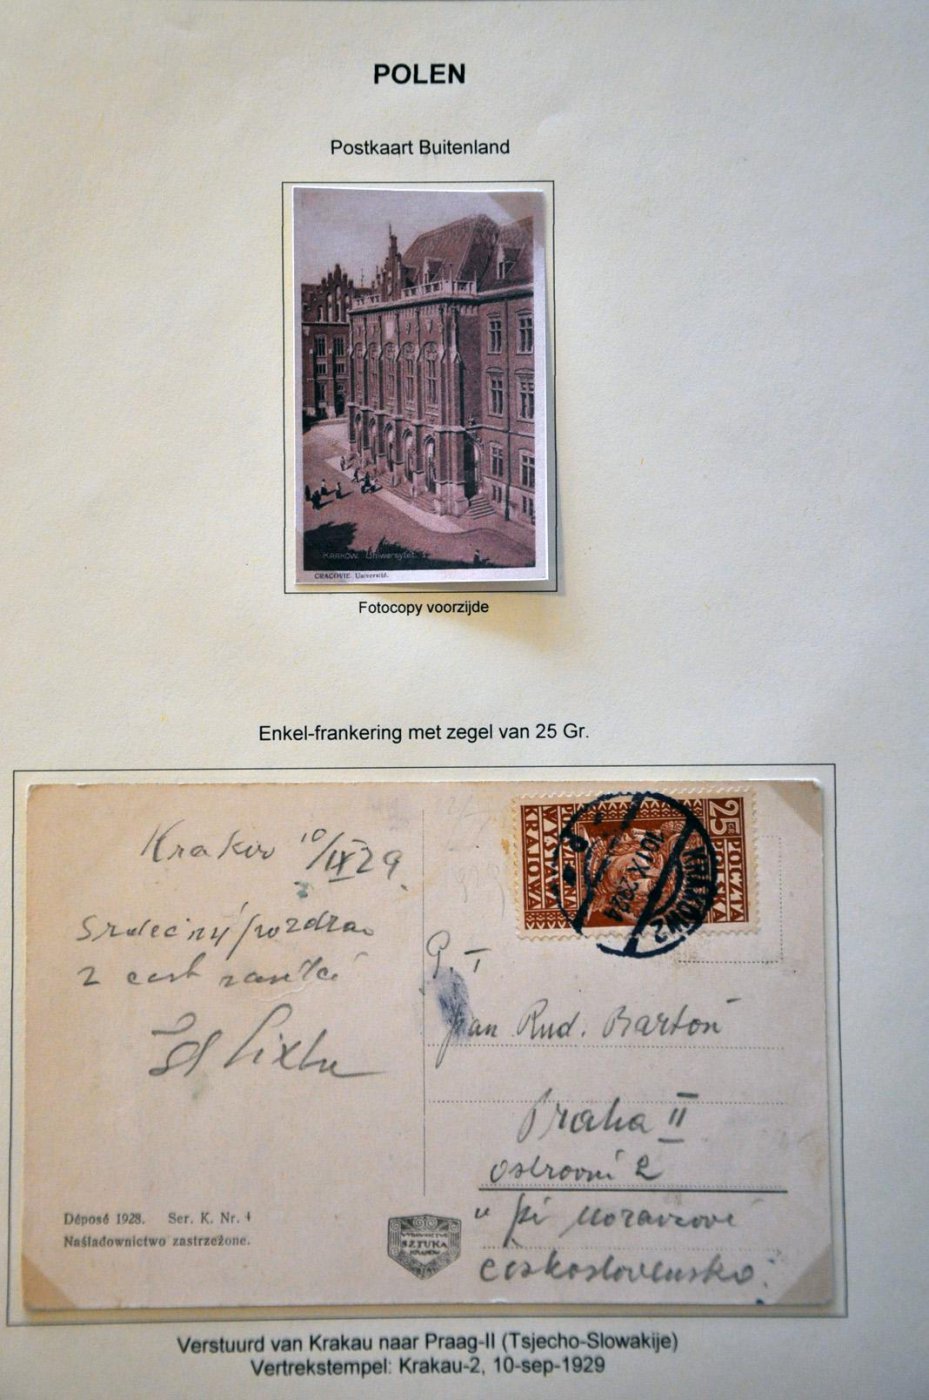 POLEN
Postkaart Buitenland
KRAKÓW. Uniwersytet.
CRACOVIE Université.
Fotocopy voorzijde
Enkel-frankering met zegel van 25 Gr.
Krakov 10/IX 29.
Srdečný pozdrav
z cest
25 GR
POCZTA
POLSKA
WYSTAWA
KRAJOWA
KRAKÓW 2
10.IX.29 24
P. T.
pan Rud. Bartoň
Praha II
ostrovní 2
Československo.
Déposé 1928. Ser. K. Nr. 4
Naśladownictwo zastrzeżone.
WYDAWNICTWO
SZTUKA
KRAKÓW
Verstuurd van Krakau naar Praag-II (Tsjecho-Slowakije)
Vertrekstempel: Krakau-2, 10-sep-1929